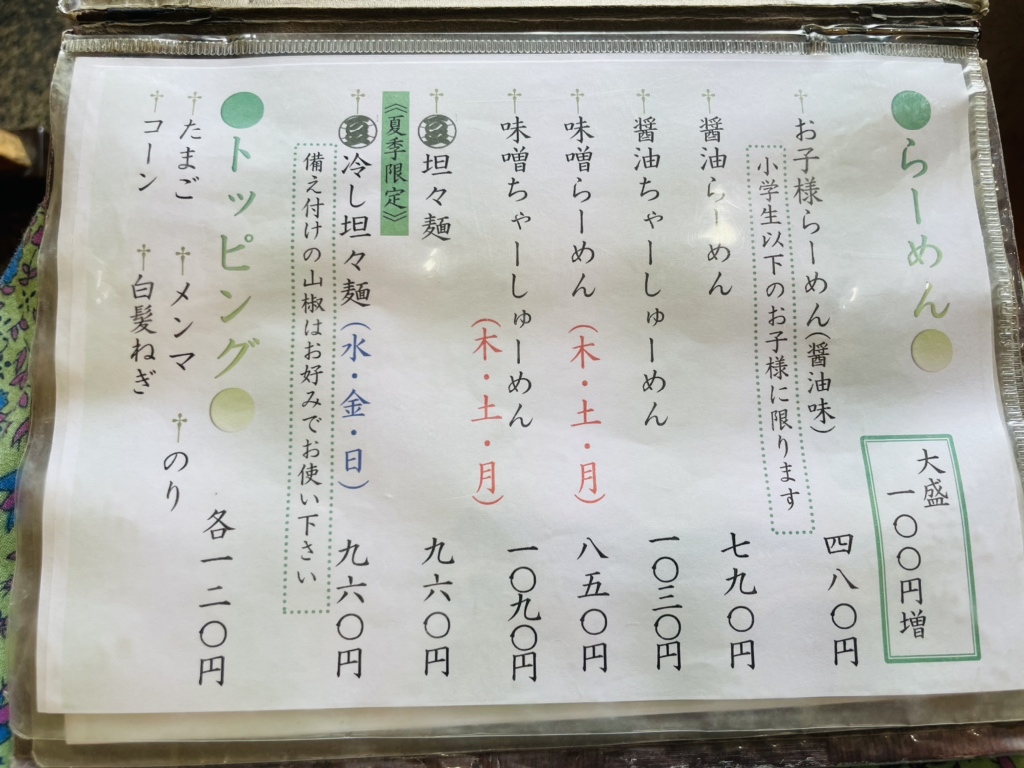 ●らーめん●
大盛
一〇〇円増
†お子様らーめん(醤油味) 四八〇円
小学生以下のお子様に限ります
†醤油らーめん 七九〇円
†醤油ちゃーしゅーめん 一〇三〇円
†味噌らーめん(木・土・月) 八五〇円
†味噌ちゃーしゅーめん 一〇九〇円
(木・土・月)
†坦々麺 九六〇円
《夏季限定》
†冷し坦々麺(水・金・日) 九六〇円
備え付けの山椒はお好みでお使い下さい
●トッピング● 各一二〇円
†たまご †メンマ †のり
†コーン †白髪ねぎ